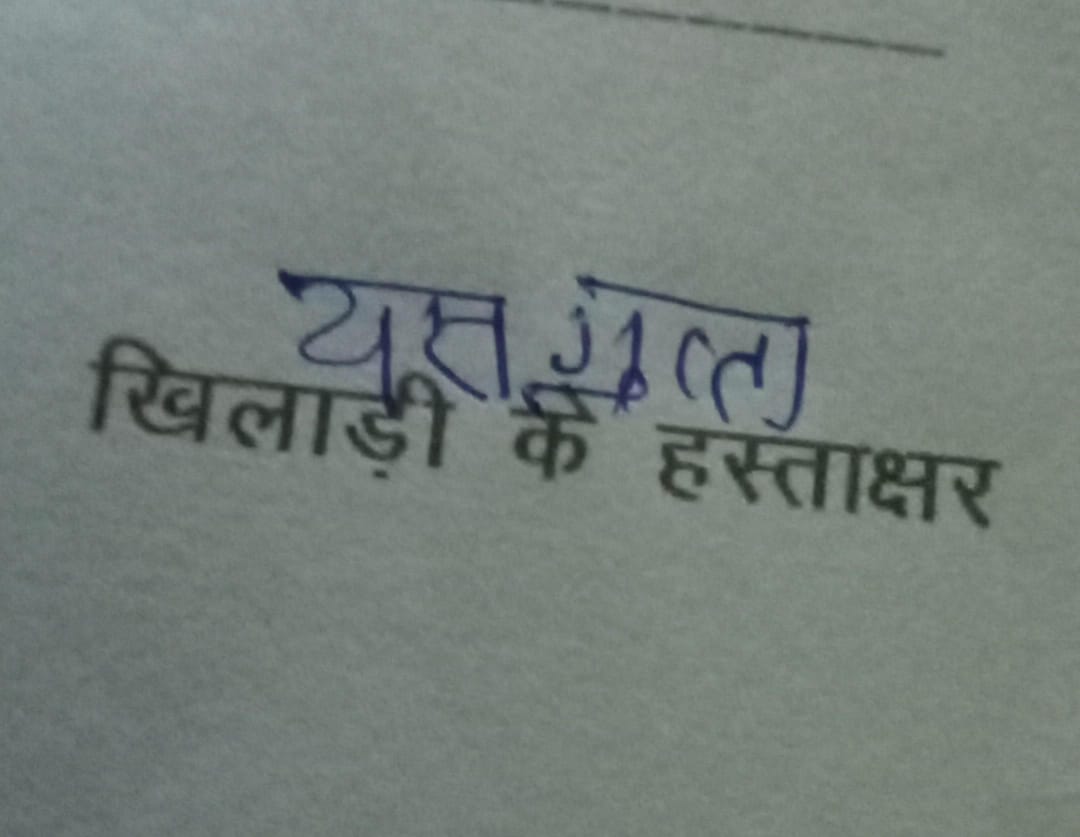 यस गुप्ता
खिलाड़ी के हस्ताक्षर